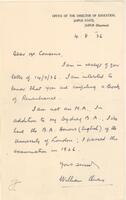 OFFICE OF THE DIRECTOR OF EDUCATION,
JAIPUR STATE,
JAIPUR (Rajputana)
4. 8. 36
Dear Mr Cousens,
I am in receipt of your
letter of 14/7/36. I am interested to
know that you are compiling a Book
of Remembrance.
I am not an M.A. In
addition to my Sydney B.A. I also
hold the B.A. Honours (English) of the
University of London; I passed the
examination in 1926.
Yours sincerely
William Owens